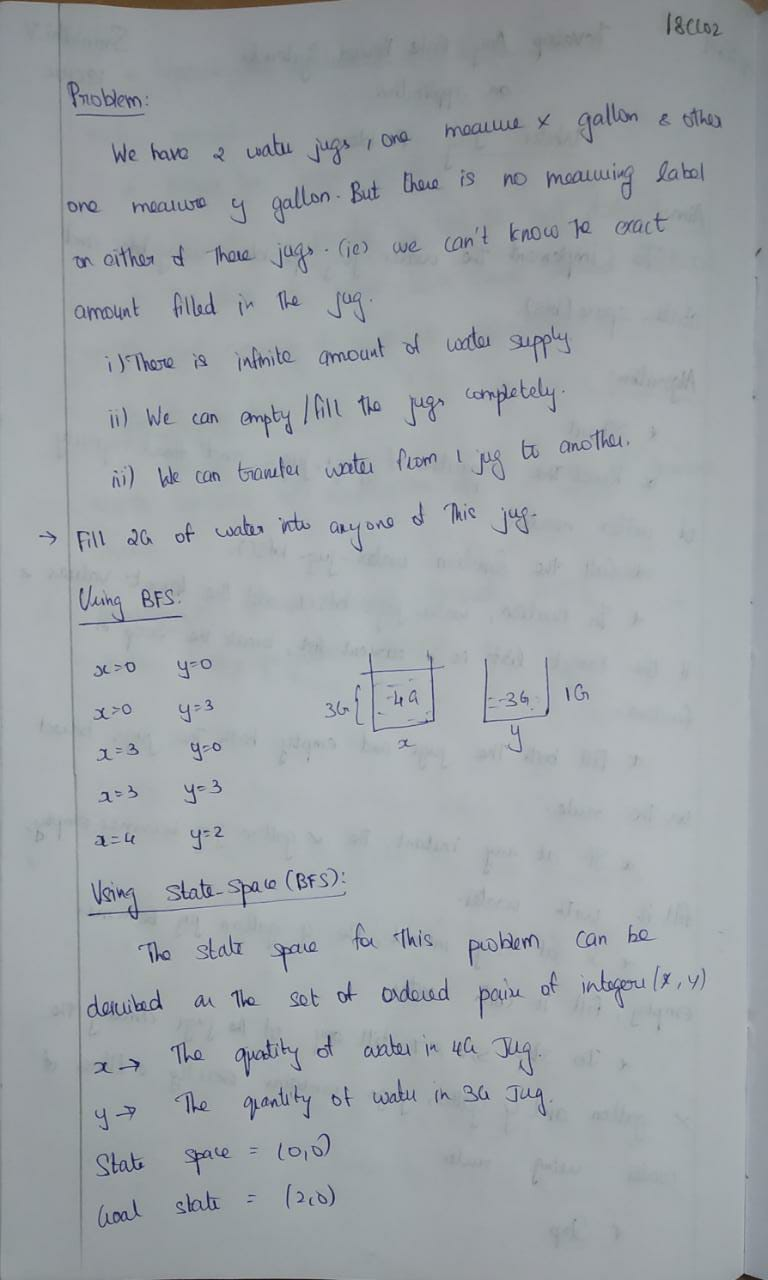 18CL02
Problem:
We have 2 water jugs, one measure x gallon & other
one measure y gallon. But there is no measuring label
on either of these jugs. (ie) we can't know the exact
amount filled in the jug.
i) There is infinite amount of water supply
ii) We can empty/fill the jugs completely.
iii) We can transfer water from 1 jug to another.
→ Fill 2G of water into anyone of this jug.
Using BFS:
x=0 y=0
x=0 y=3
x=3 y=0
x=3 y=3
x=4 y=2
3G{ 4G 3G 1G
x y
Using State-Space (BFS):
The state space for this problem can be
described as the set of ordered pairs of integers (x, y)
x → The quantity of water in 4G Jug.
y → The quantity of water in 3G Jug.
State space = (0,0)
Goal state = (2,0)